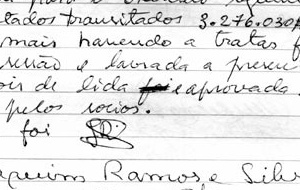 tados transitados 3.276.030
mais havendo a tratar f
reunião e lavrada a presen
ois de lida foi e aprovada
pelos socios.
foi
aquim Ramos e Silv